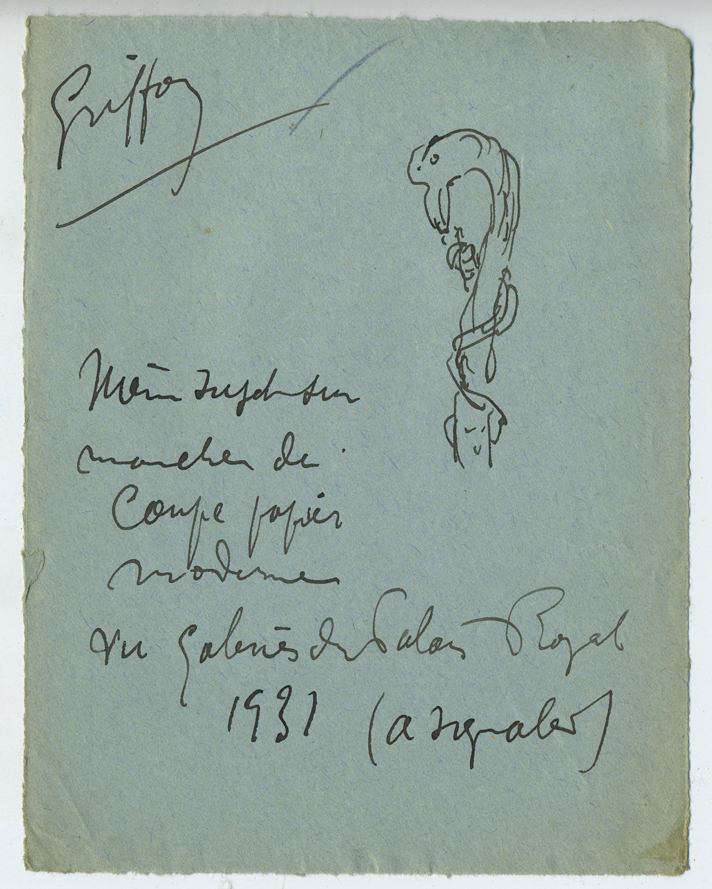 Griffon
Même sujet sur
manches de
Coupe papier
moderne
vu Galeries du Palais Royal
1931 (a signaler)